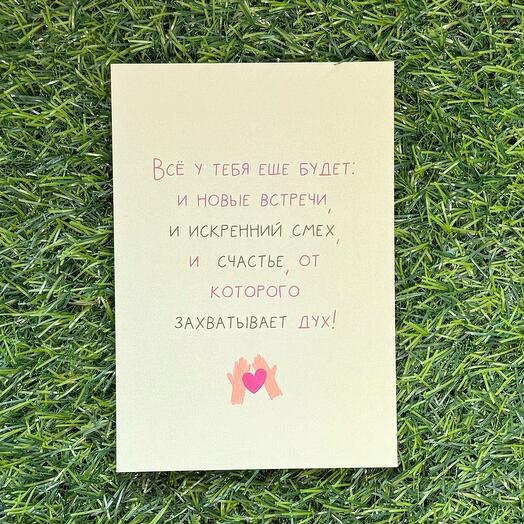 Всё у тебя еще будет:
и новые встречи,
и искренний смех,
и счастье, от
которого
захватывает дух!